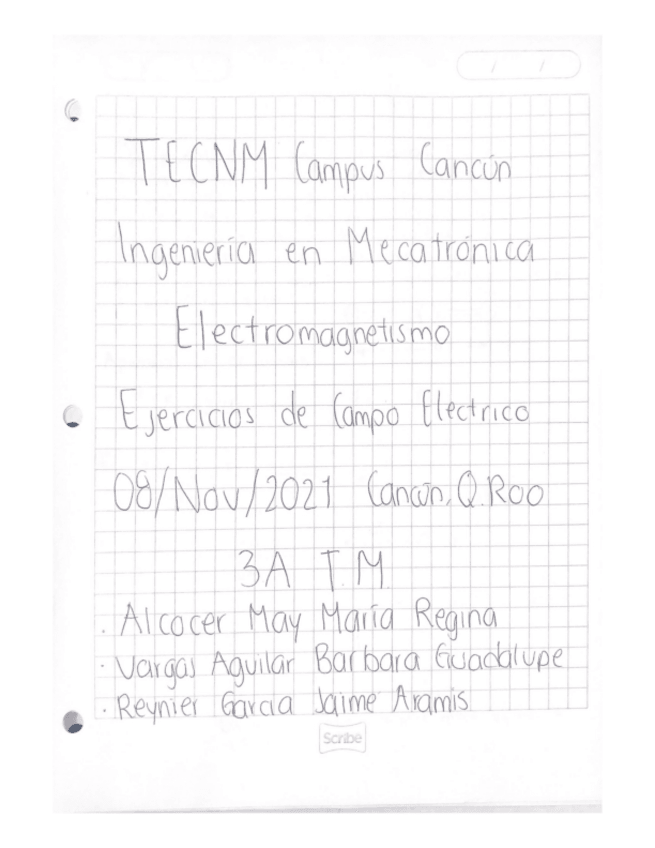 TECNM Campus Cancún
Ingeniería en Mecatrónica
Electromagnetismo
Ejercicios de Campo Electrico
08/Nov/2021 Cancún, Q.Roo
3A T.M.
. Alcocer May María Regina
. Vargas Aguilar Barbara Guadalupe
. Reynier Garcia Jaime Aramis
Scribe